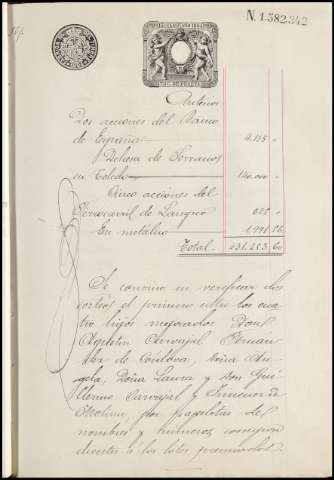 N. 1.582.342
Anterior
Dos acciones del Banco
de España 4.115 "
Dehesa de Serranos
en Toledo "
Cinco acciones del
Ferrocarril de Langreo 625 "
En metálico
Total 431,253,60
Se convino en verificar dos
sorteos el primero entre los cua
tro hijos mejorados Don
Agustin Carvajal Fernan
dez de Cordova, Doña An
gela, Doña Laura y Don Gui
llermo Carvajal y Jimenez de
Molina, por papeletas de
nombres y números correspon
dientes á los lotes premiados.